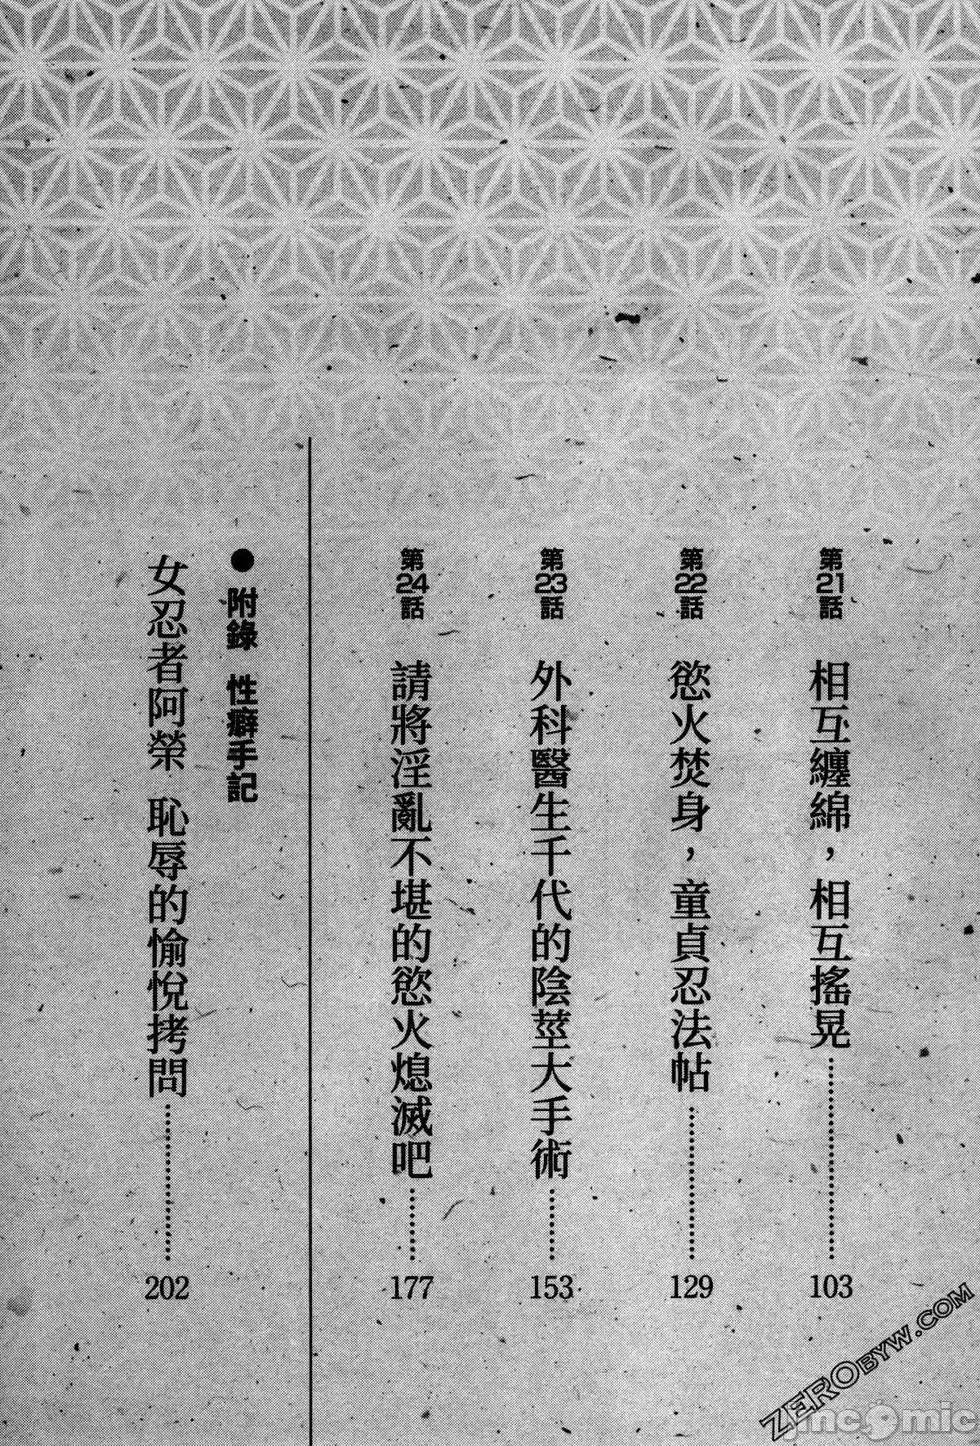 第21話 相互纏綿，相互搖晃……………103
第22話 慾火焚身，童貞忍法帖……………129
第23話 外科醫生千代的陰莖大手術………153
第24話 請將淫亂不堪的慾火熄滅吧………177
●附錄 性癖手記
女忍者阿榮 恥辱的愉悅拷問……………202
ZEROBYW.COM